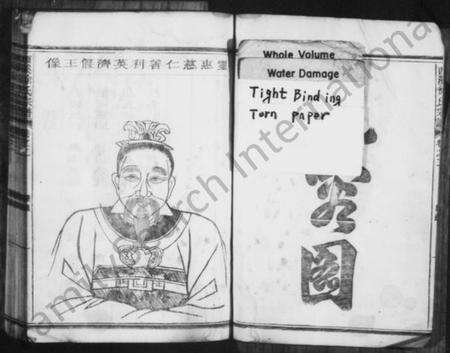 靈惠慈仁善利英濟假王像
Whole Volume
Water Damage
Tight Binding
Torn paper
圖
FamilySearch International